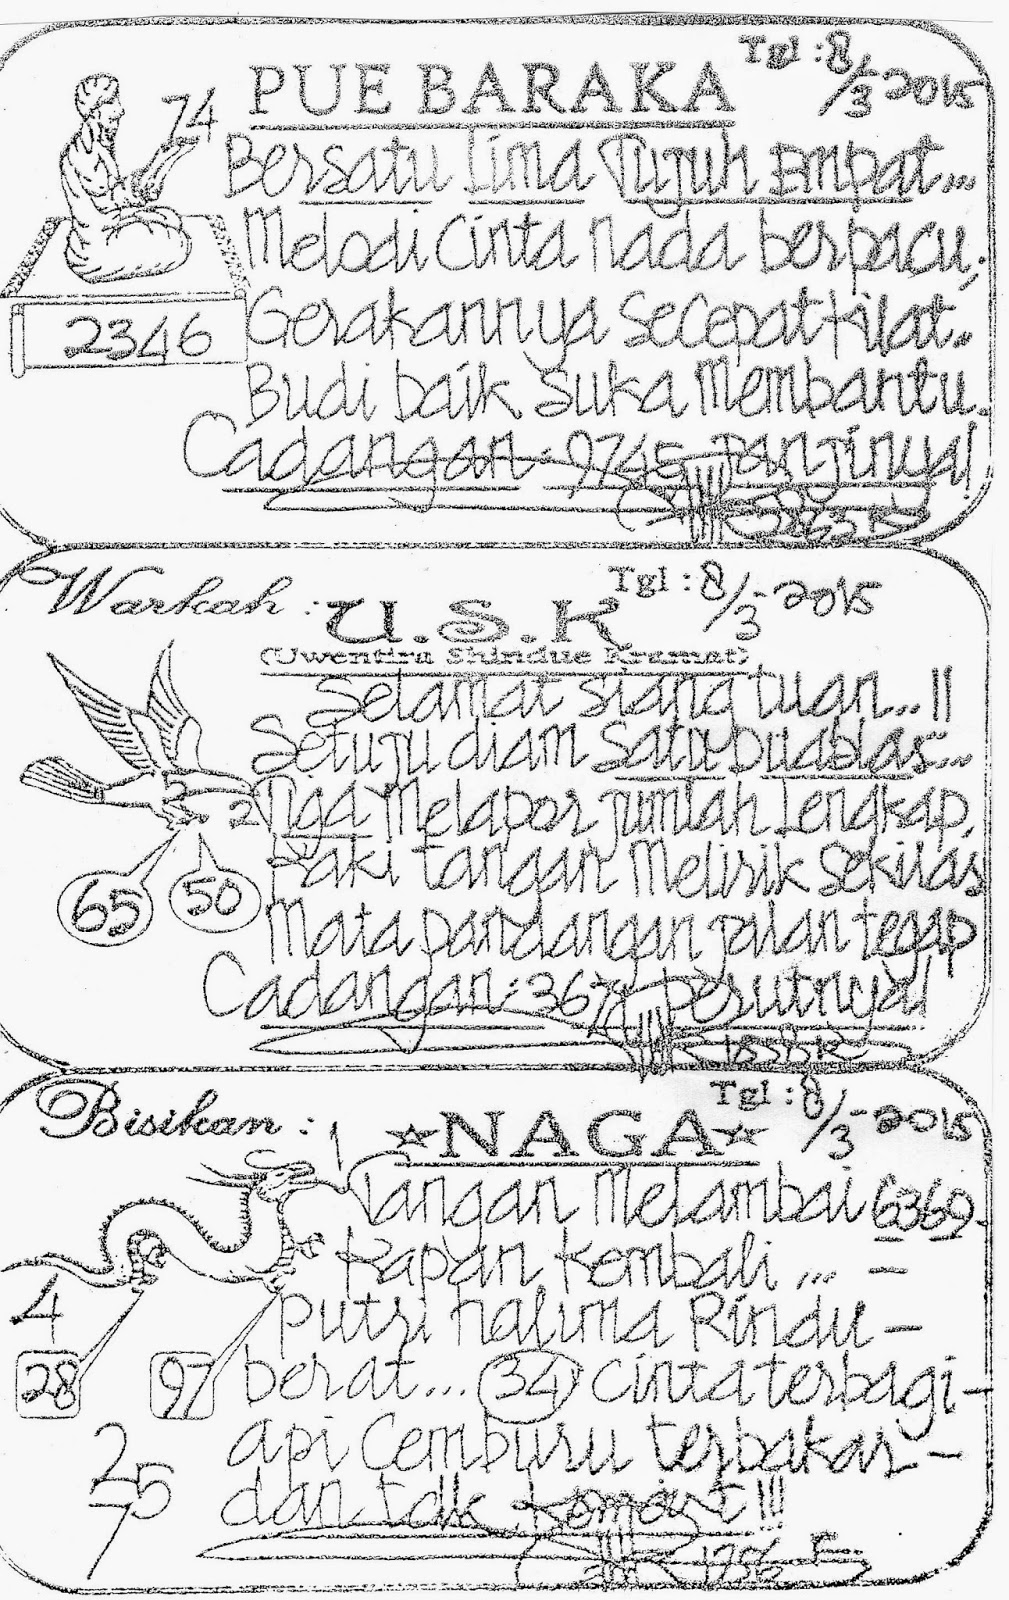 Tgl : 8/3-2015
PUE BARAKA
74
Bersatu Lima Tujuh Empat...
Melodi Cinta nada berpacu;
2346
Gerakannya secepat kilat..
Budi baik suka Membantu.
Cadangan: 9745 Panjinya!
Warkah : U.S.K
Tgl : 8/3-2015
(Uwentira Shindue Kramat)
Selamat siang tuan..!!
Setuju diam Satu Duablas...
2
2
Tiga Melapor jumlah Lengkap.
Kaki tangan Melirik Sekilas
65
50
Mata pandangan jalan tegap
Cadangan: 3671 perutnya!
Bisikan : NAGA
Tgl : 8/3-2015
1
Tangan Melambai 6369-
Kapan Kembali ... -
4
Putri halima Rindu -
28
97
berat... 34 Cinta terbagi-
api Cemburu terbakar -
25
7
dan tdk
!!!